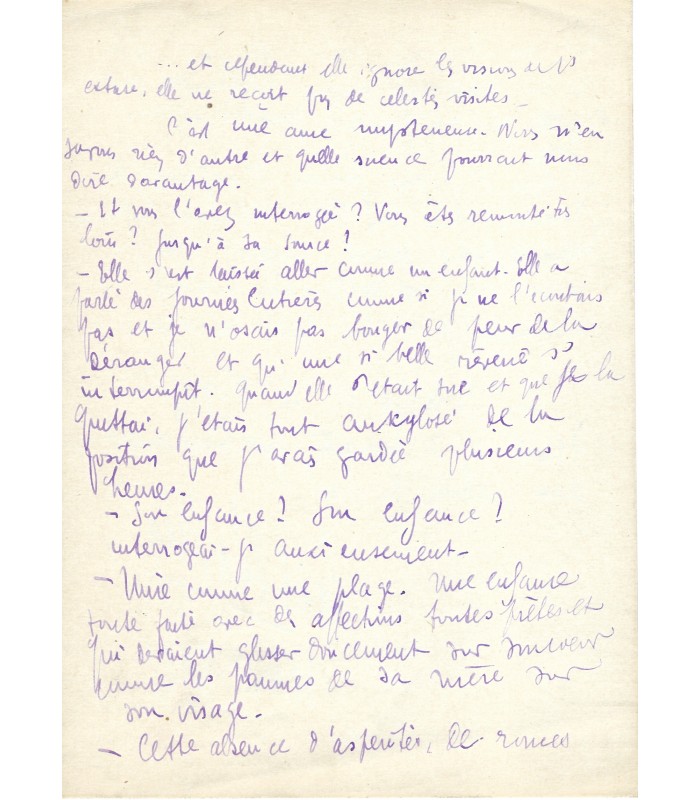 ... et cependant elle ignore les visions de l'
extase, elle ne reçoit pas de celestes visites_
C'est une ame mysterieuse. Nous n'en
savons rien d'autre et quelle science pourrait nous
dire davantage.
- Et vous l'avez interrogée? Vous êtes remonté très
loin? Jusqu'à sa source?
- Elle s'est laissée aller comme un enfant. Elle a
parlé des journées entières comme si je ne l'ecoutais
pas et je n'osais pas bouger de peur de la
déranger et qu'une si belle rêverie s'
interrompît. Quand elle s'etait tue et que je la
quittai, j'étais tout ankylosé de la
position que j'avais gardée plusieurs
heures.
- Son enfance? Son enfance?
interrogeai-je anxieusement_
- Unie comme une plage. Une enfance
toute faite avec des affections toutes prêtes et
qui devaient glisser doucement sur son coeur
comme les paumes de sa mère sur
son visage.
- Cette absence d'asperités, de ronces